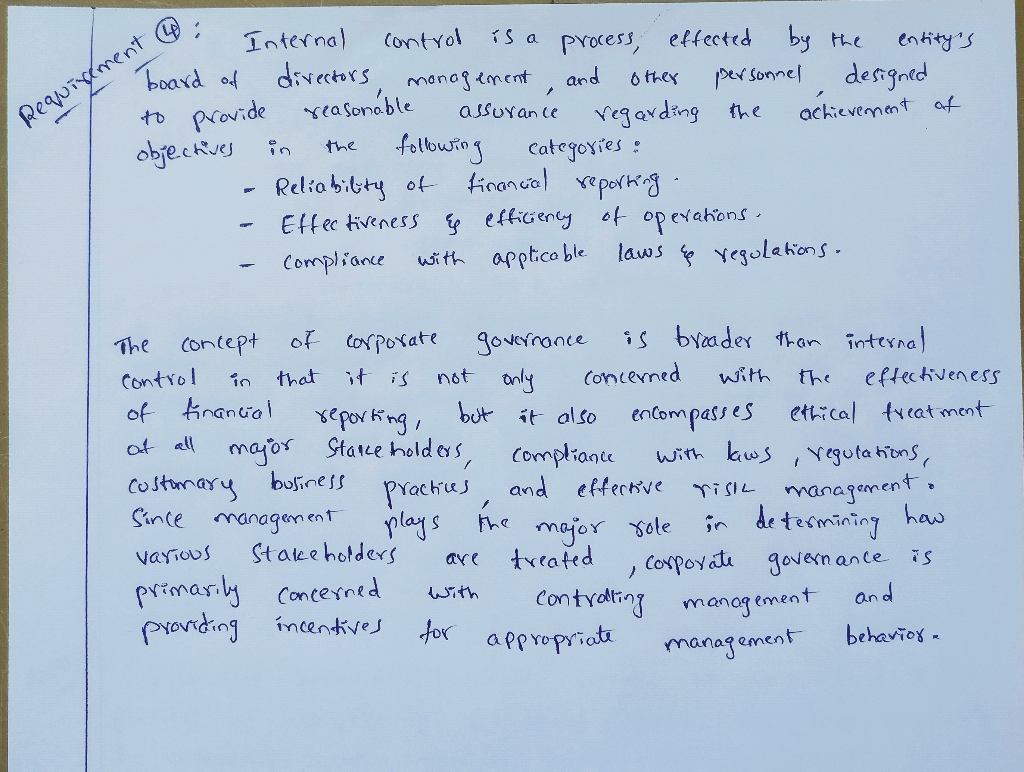 Requirement ④ : Internal control is a process, effected by the entity's
board of directors, management, and other personnel, designed
to provide reasonable assurance regarding the achievement of
objectives in the following categories :
- Reliability of financial reporting.
- Effectiveness & efficiency of operations.
- Compliance with applicable laws & regulations.
The concept of corporate governance is broader than internal
control in that it is not only concerned with the effectiveness
of financial reporting, but it also encompasses ethical treatment
of all major stakeholders, compliance with laws, regulations,
customary business practices, and effective risk management.
Since management plays the major role in determining how
various stakeholders are treated, corporate governance is
primarily concerned with controlling management and
providing incentives for appropriate management behavior.